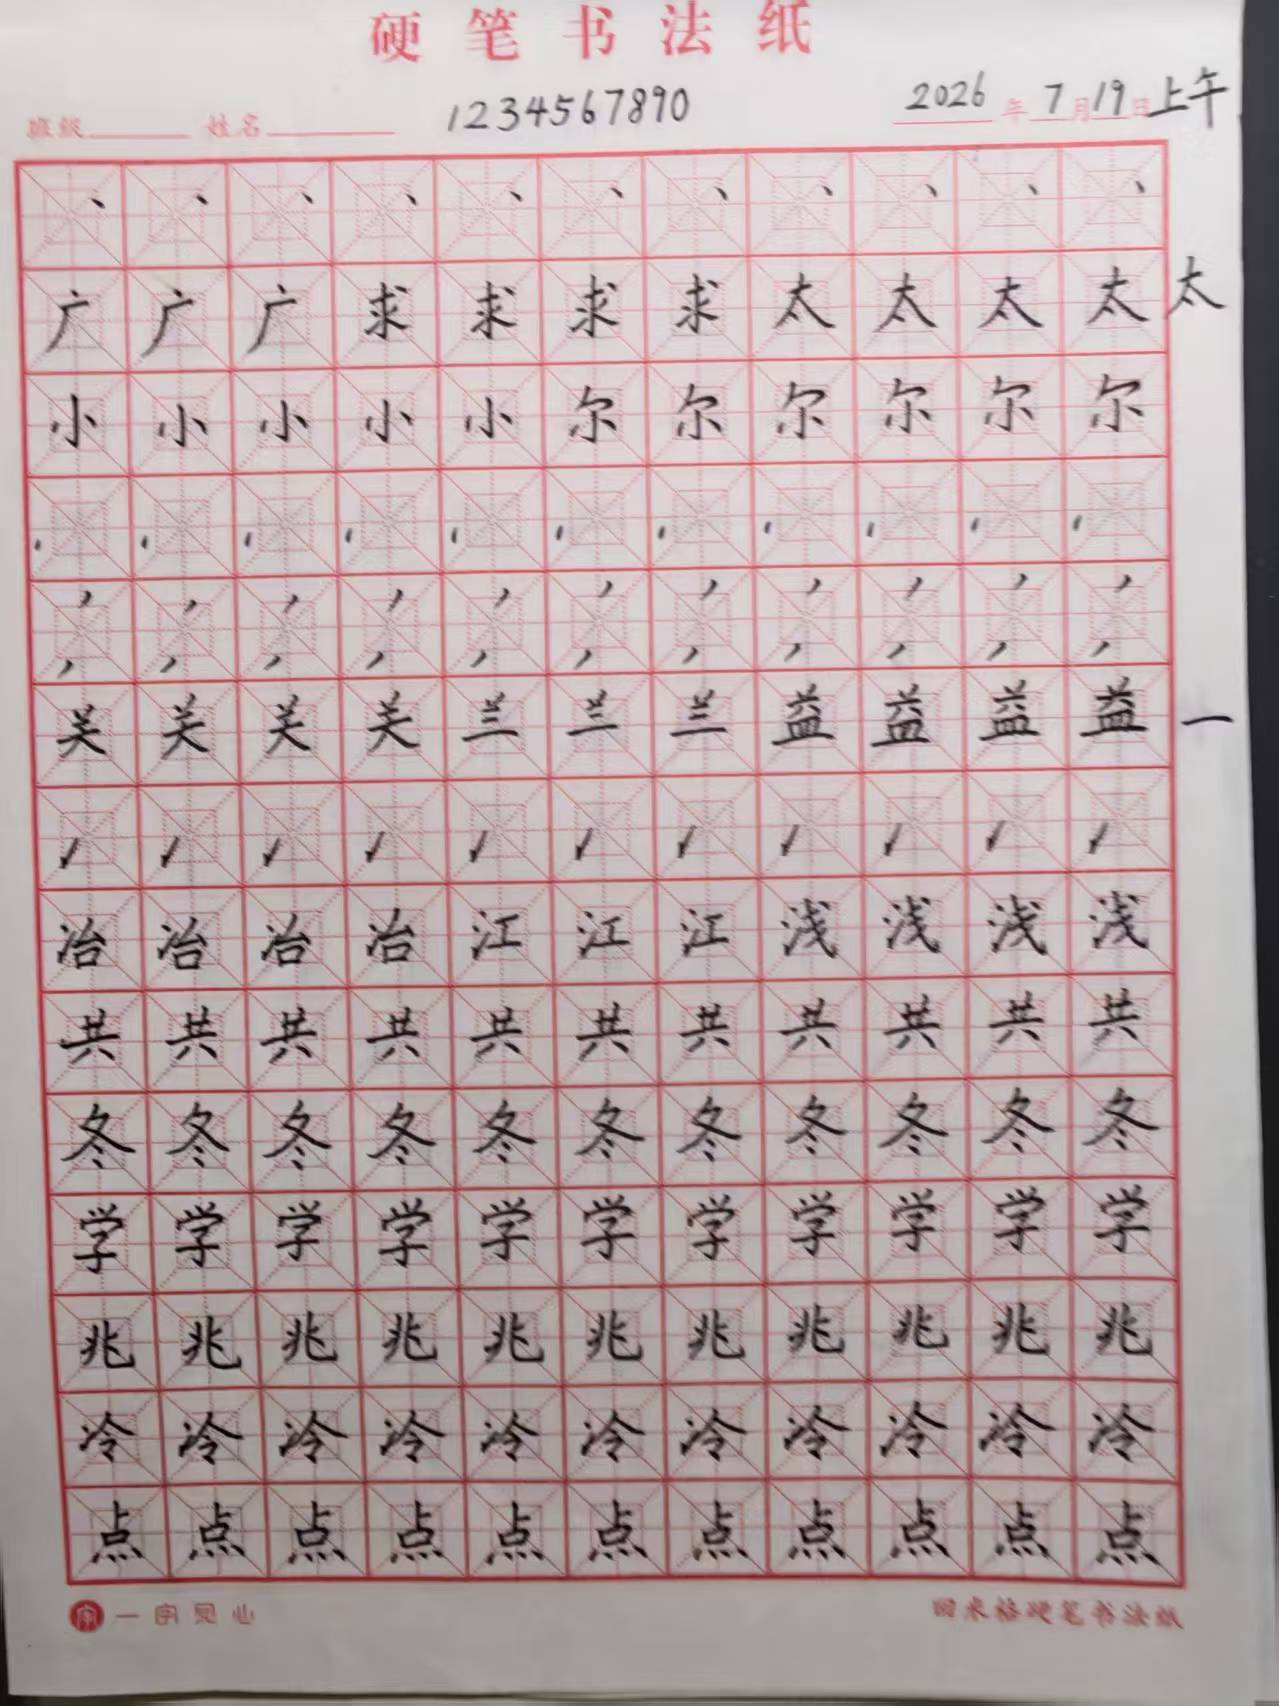 硬笔书法纸
班级 姓名 1234567890 2026年7月19日上午
、、、、、、、、、、、
广广广求求求求太太太太太
小小小小小尔尔尔尔尔尔
关关关关兰兰兰益益益益一
冶冶治治江江江浅浅浅浅
共共共共共共共共共共共
冬冬冬冬冬冬冬冬冬冬冬
学学学学学学学学学学学
兆兆兆兆兆兆兆兆兆兆兆
冷冷冷冷冷冷冷冷冷冷冷
点点点点点点点点点点点
字 一字见心 回米格硬笔书法纸